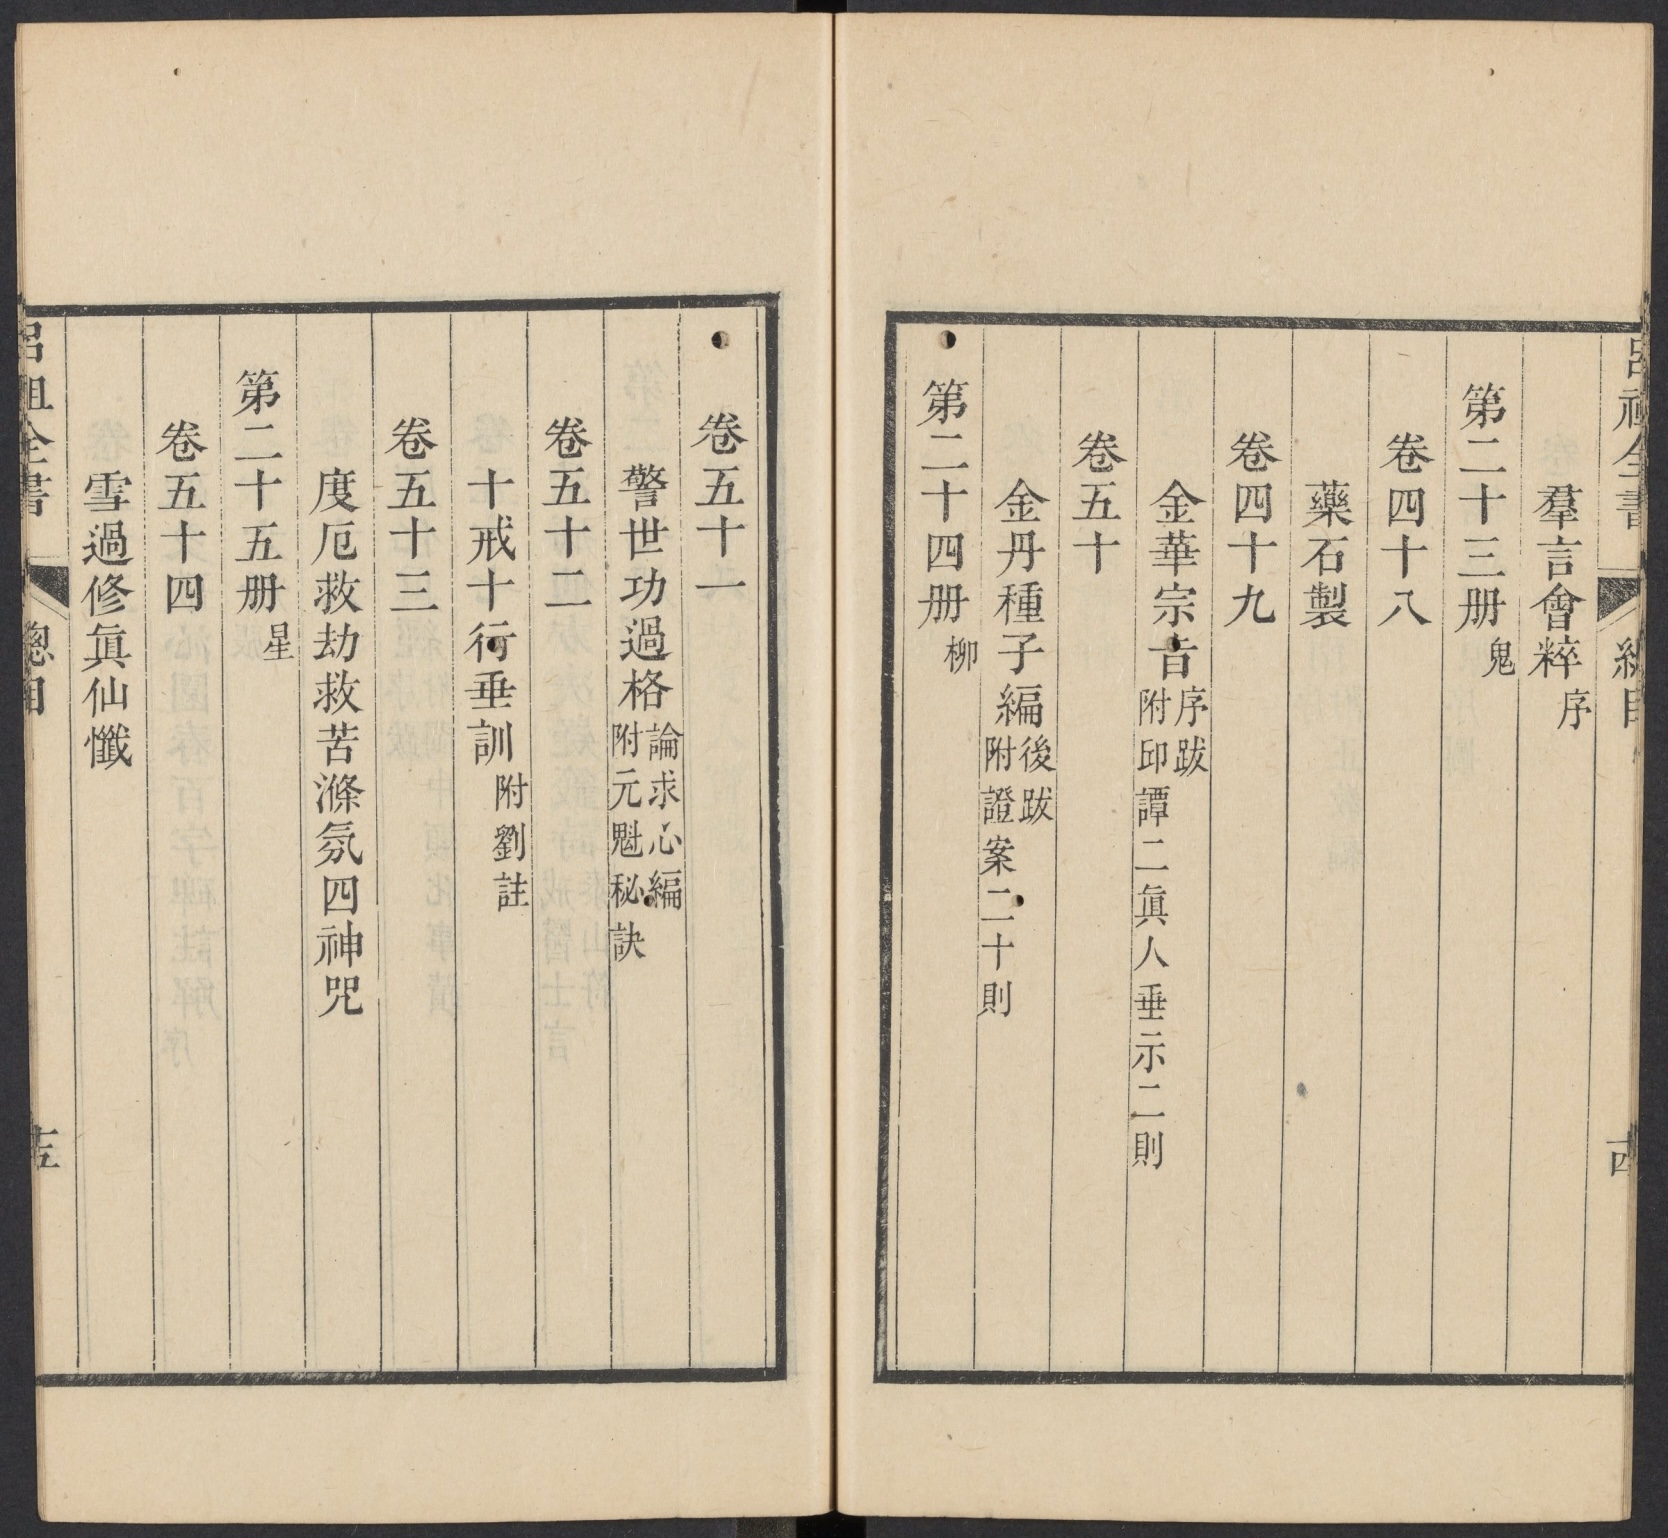 呂祖全書 總目 十四
羣言會粹 序
第二十三册 鬼
卷四十八
藥石製
卷四十九
金華宗旨 序跋 附邱譚二眞人垂示二則
卷五十
金丹種子編 後跋 附證案二十則
第二十四册 柳
卷五十一
警世功過格 論求心編 附元魁秘訣
卷五十二
十戒十行垂訓 附劉註
卷五十三
度厄救劫救苦滌氛四神咒
第二十五册 星
卷五十四
雪過修眞仙懺
呂祖全書 總目 十五